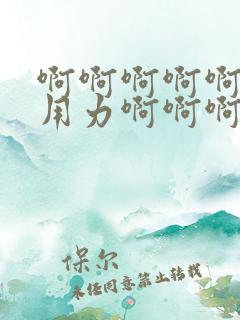 啊啊啊啊啊
用力啊啊啊
保尔
未经同意禁止转载